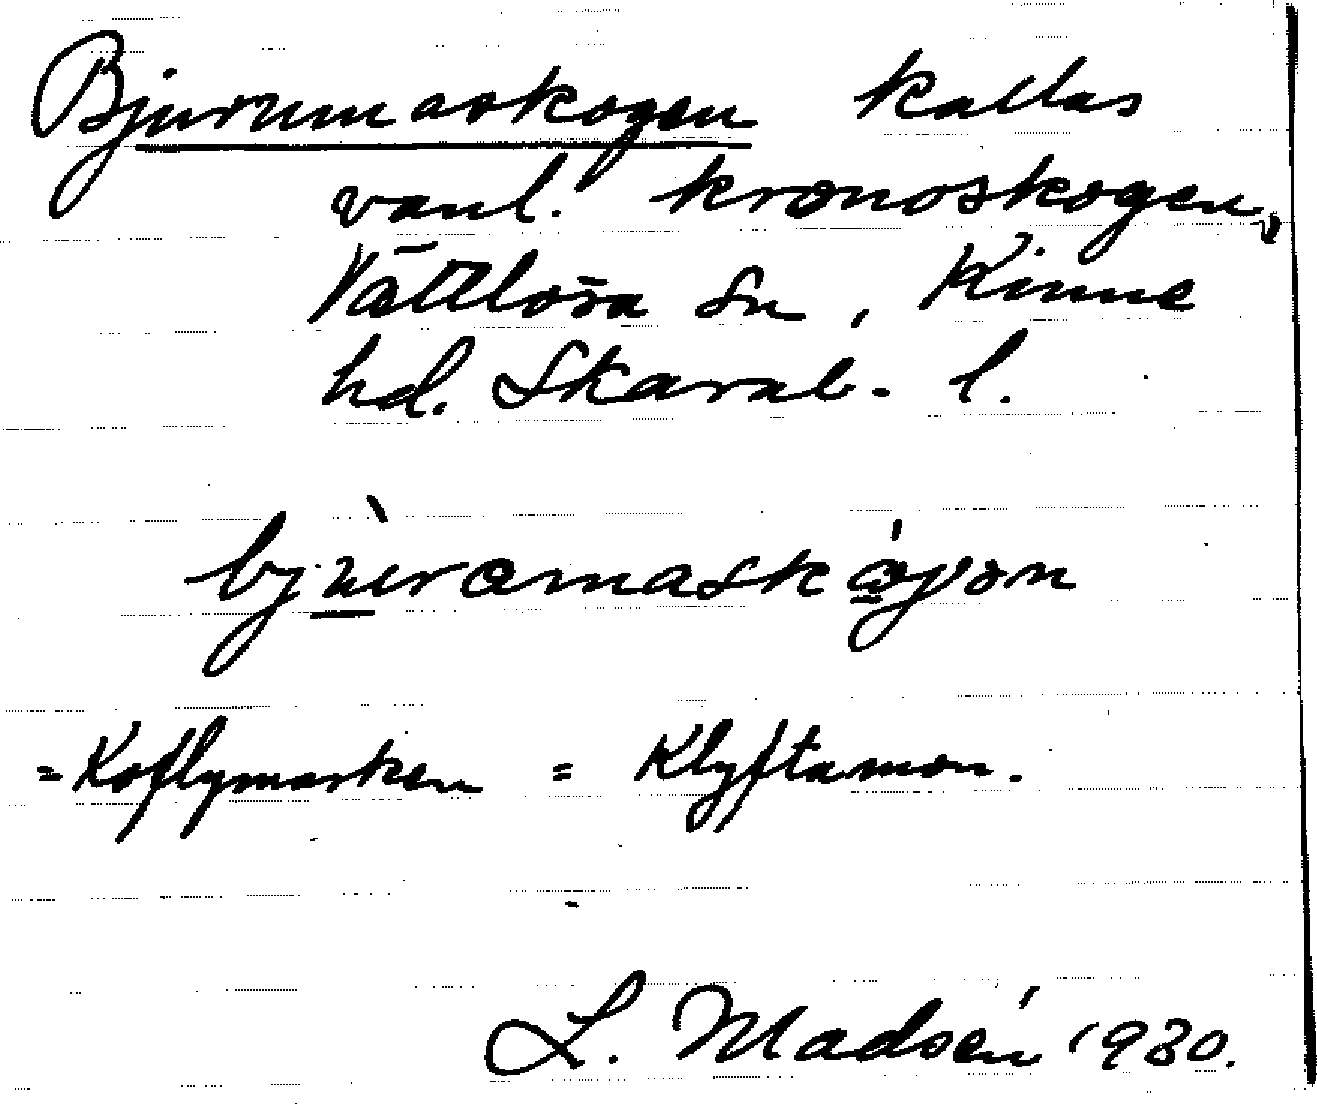 Bjurumaskogen kallas
vanl. kronoskogen,
Vättlösa sn, Kinne
hd. Skarab. l.
bjùramaskóγən
= Koflymarken = Klyftamon.
L. Madsén 1930.